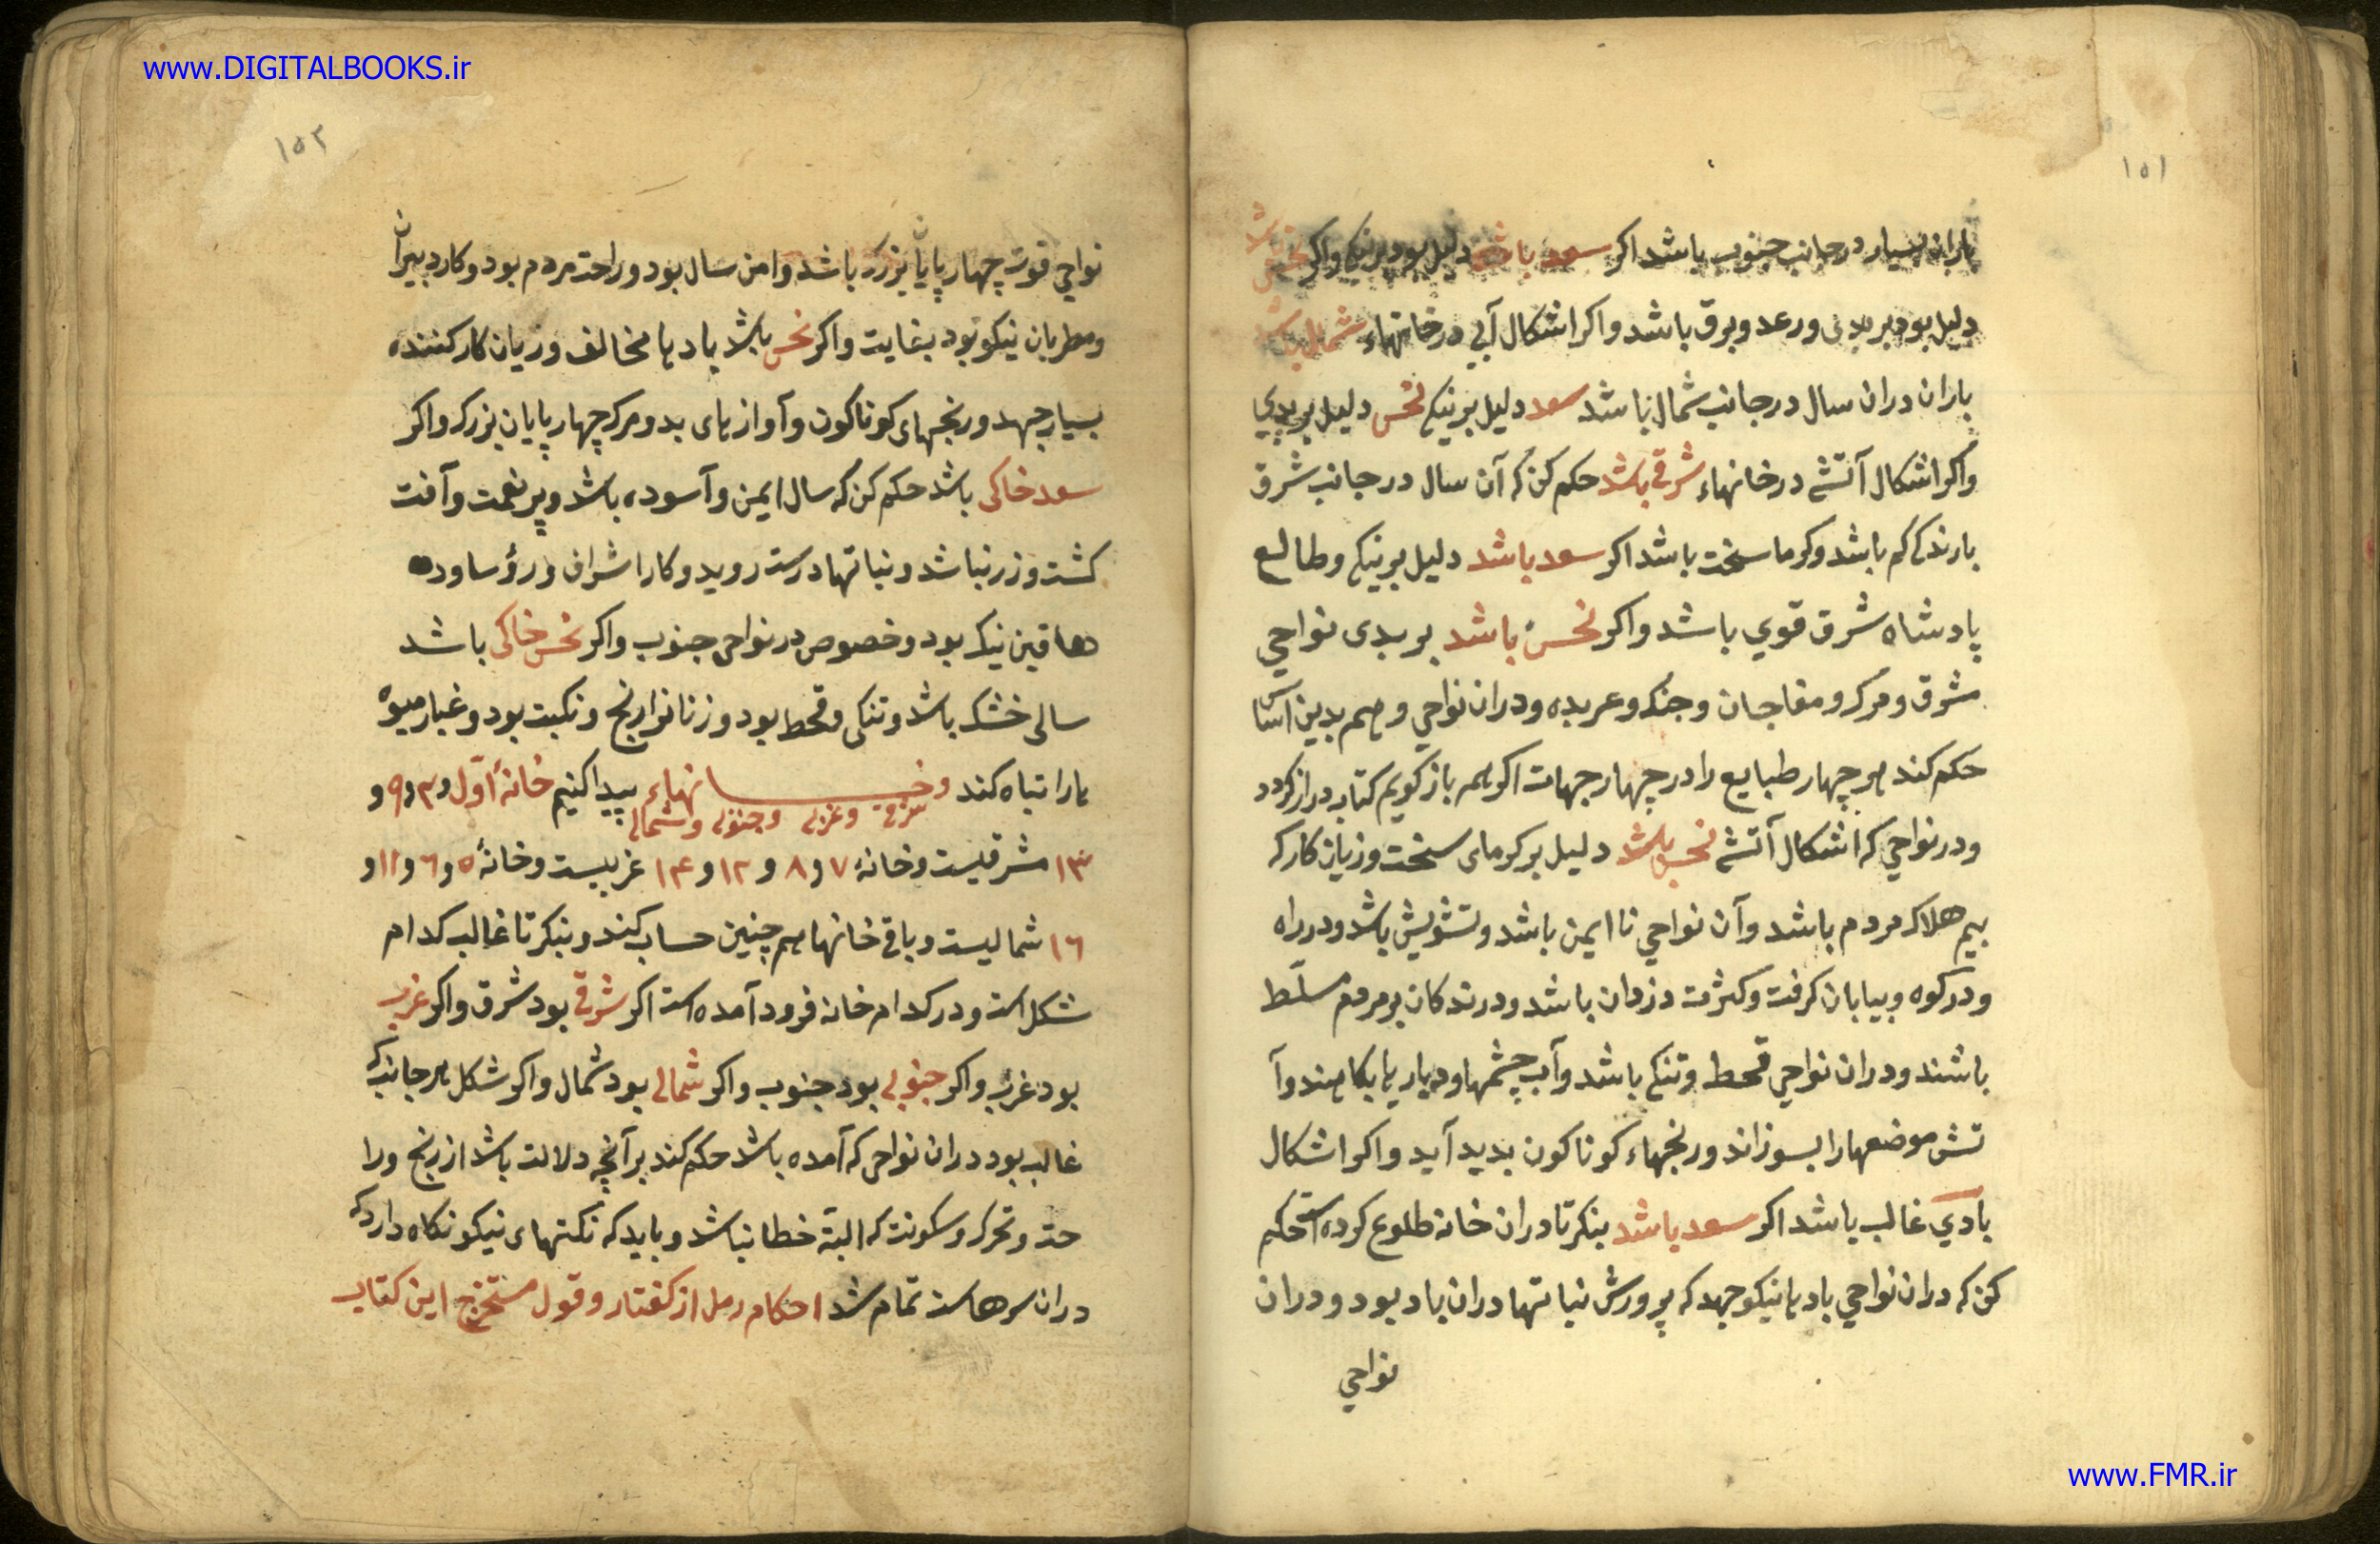 www.DIGITALBOOKS.ir
١٥١
باران بسیار در جانب جنوب باشد اکر سعد باشد دلیل بود بر نیکی واکر نحس باشد
دلیل بود بر بدی ورعد وبرق باشد واکر اشکال آبی در خانهاء شمال باشد
باران دران سال در جانب شمال باشد سعد دلیل بر نیکی نحس دلیل بر بدی
واکر اشکال آتشی در خانهاء شرقی باشد حکم کن که آن سال در جانب شرق
بارندکی کم باشد وکرما سخت باشد اکر سعد باشد دلیل بر نیکی وطالع
پادشاه شرق قوی باشد واکر نحس باشد بر بدی نواحی
مشرق ومرک ومفاجان وجنک وعربده ودران نواحی وهم بدین آسا
حکم کند هر چهار طبایع را در چهار جهات اکر همه باز کویم کتاب دراز کردد
ودر نواحی که اشکال آتشی نحس باشد دلیل بر کرمای سخت وزیان کار که
بیم هلاک مردم باشد وآن نواحی نا ایمن باشد وتشویش باشد ودر راه
ودر کوه وبیابان کرفت وکثرت دزدان باشد ودرندکان بر مردم مسلّط
باشند ودران نواحی قحط وتنکی باشد وآب چشمها ودیار یا بکاهند وآ
تش موضعها را بسوزاند ورنجهاء کوناکون بدید آید واکر اشکال
بادی غالب باشد اکر سعد باشد بنکر تا دران خانه طلوع کرده است حکم
کن که دران نواحی بادها نیکو جهد که پرورش نباتها دران باد بود ودران
نواحی
١٥٢
نواحی قوت چهار پایان بزرک باشد وامن سال بود وراحت مردم بود وکار دبیران
ومطربان نیکو بود بغایت واکر نحس باشد بادها مخالف وزیان کار کننده
بسیار جهد ورنجهای کوناکون وآوازهای بد ومرک چهار پایان بزرک واکر
سعد خاکی باشد حکم کن که سال ایمن وآسوده باشد وپر نعمت وآفت
کشت وزر نباشد ونباتها درست روید وکار اشراف ورؤسا ود
هاقین نیک بود وخصوص در نواحی جنوب واکر نحس خاکی باشد
سالی خشک باشد وتنکی وقحط بود وزنانرا رنج ونکبت بود وغبار میوه
ها را تباه کند وخانهاء پیدا کنیم خانهٔ اوّل و٣ و٩ و
شرقی وغربی وجنوبی وشمالی
١٣ مشرقیست وخانهٔ ٧ و٨ و١٢ و١٤ غربیست وخانهٔ ٥ و٦ و١١ و
١٦ شمالیست وباقی خانها هم چنین حساب کند وبنکر تا غالب کدام
شکل است ودر کدام خانه فرود آمده است اکر شرقی بود شرق واکر غربی
بود غرب واکر جنوبی بود جنوب واکر شمالی بود شمال واکر شکل هر جانب که
غالب بود دران نواحی که آمده باشد حکم کند بر آنچه دلالت باشد از رنج ورا
حت وتحرک وسکونت که البتّه خطا نباشد وباید که نکتهای نیکو نکاه دارد که
دران سرهاست تمام شد احکام رمل از کفتار وقول مستخرج این کتاب
www.FMR.ir